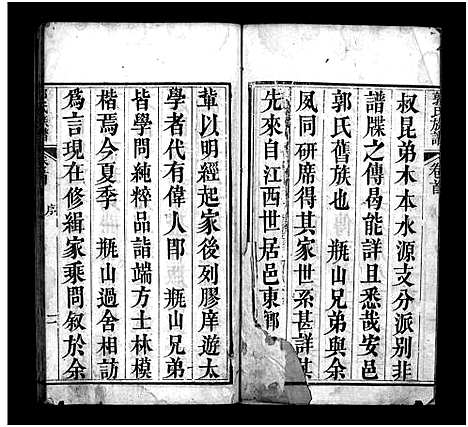 郭氏族譜　卷首
叔昆弟木本水源支分派別非
譜牒之傳曷能詳且悉哉安邑
郭氏舊族也　瓶山兄弟與余
夙同研席得其家世系甚詳其
先來自江西世居邑東鄉
軰以明經起家後列膠庠遊太
學者代有偉人郎　瓶山兄弟
皆學問純粹品詣端方士林模
楷焉今夏季　瓶山過舍相訪
爲言現在修緝家乘問叙於余
氏族譜　序　二